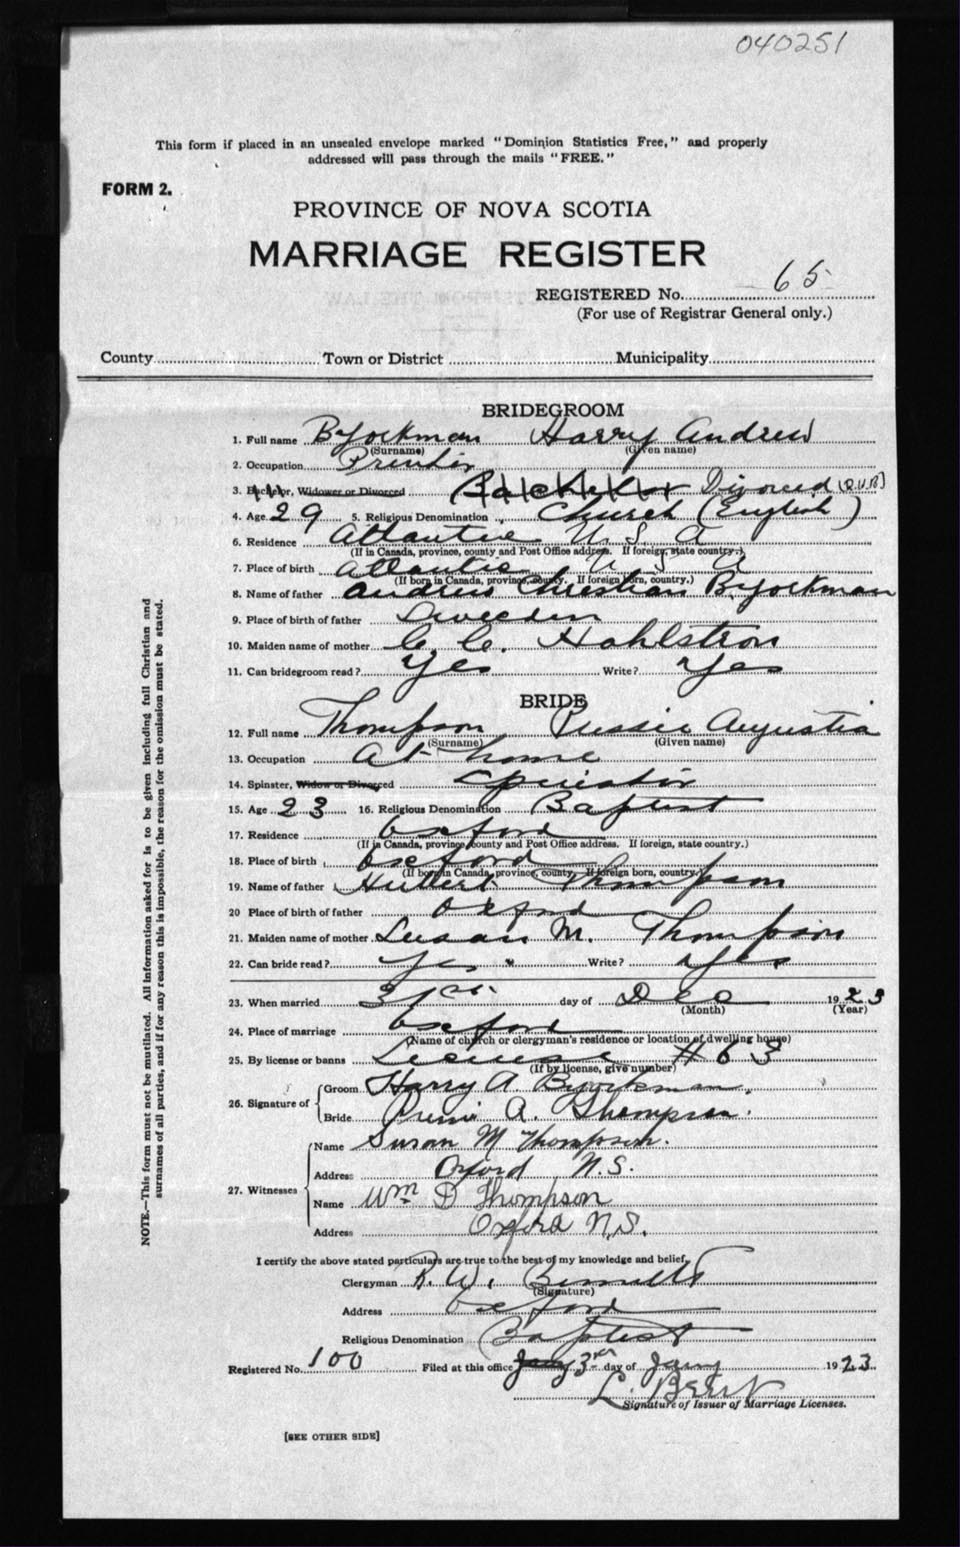 040251
This form if placed in an unsealed envelope marked "Dominion Statistics Free," and properly
addressed will pass through the mails "FREE."
FORM 2.
PROVINCE OF NOVA SCOTIA
MARRIAGE REGISTER
REGISTERED No. 65
(For use of Registrar General only.)
County Town or District Municipality
BRIDEGROOM
1. Full name Byorkman Harry Andrew
(Surname) (Given name)
2. Occupation Printer
3. Bachelor, Widower or Divorced Bachelor Divorced
4. Age 29 5. Religious Denomination Church (English)
6. Residence Atlantic U. S. A
(If in Canada, province, county and Post Office address. If foreign, state country.)
7. Place of birth Atlantic U S A
(If born in Canada, province, county. If foreign born, country.)
8. Name of father Andrew Christian Byorkman
9. Place of birth of father Sweeden
10. Maiden name of mother C. C. Hahlstron
11. Can bridegroom read? Yes Write? Yes
BRIDE
12. Full name Thompson Augustia
(Surname) (Given name)
13. Occupation At home
14. Spinster, Widow or Divorced Spinster
15. Age 23 16. Religious Denomination Baptist
17. Residence Oxford
(If in Canada, province, county and Post Office address. If foreign, state country.)
18. Place of birth Oxford
(If born in Canada, province, county. If foreign born, country.)
19. Name of father Thompson
20 Place of birth of father Oxford
21. Maiden name of mother Susan M. Thompson
22. Can bride read? Yes Write? Yes
23. When married 31st day of Dec 1923
(Month) (Year)
24. Place of marriage Oxford
(Name of church or clergyman's residence or location of dwelling house)
25. By license or banns License #63
(If by license, give number)
26. Signature of Groom Harry A Byorkman.
Bride A. Thompson.
27. Witnesses Name Susan M Thompson.
Address Oxford N.S.
Name Wm D Thompson
Address Oxford N.S.
I certify the above stated particulars are true to the best of my knowledge and belief,
Clergyman R. W.
(Signature)
Address Oxford
Religious Denomination Baptist
Registered No. 100 Filed at this office Jany 3rd day of Jany 1923
L.
Signature of Issuer of Marriage Licenses.
[SEE OTHER SIDE]
NOTE.—This form must not be mutilated. All information asked for is to be given including full Christian and
surnames of all parties, and if for any reason this is impossible, the reason for the omission must be stated.